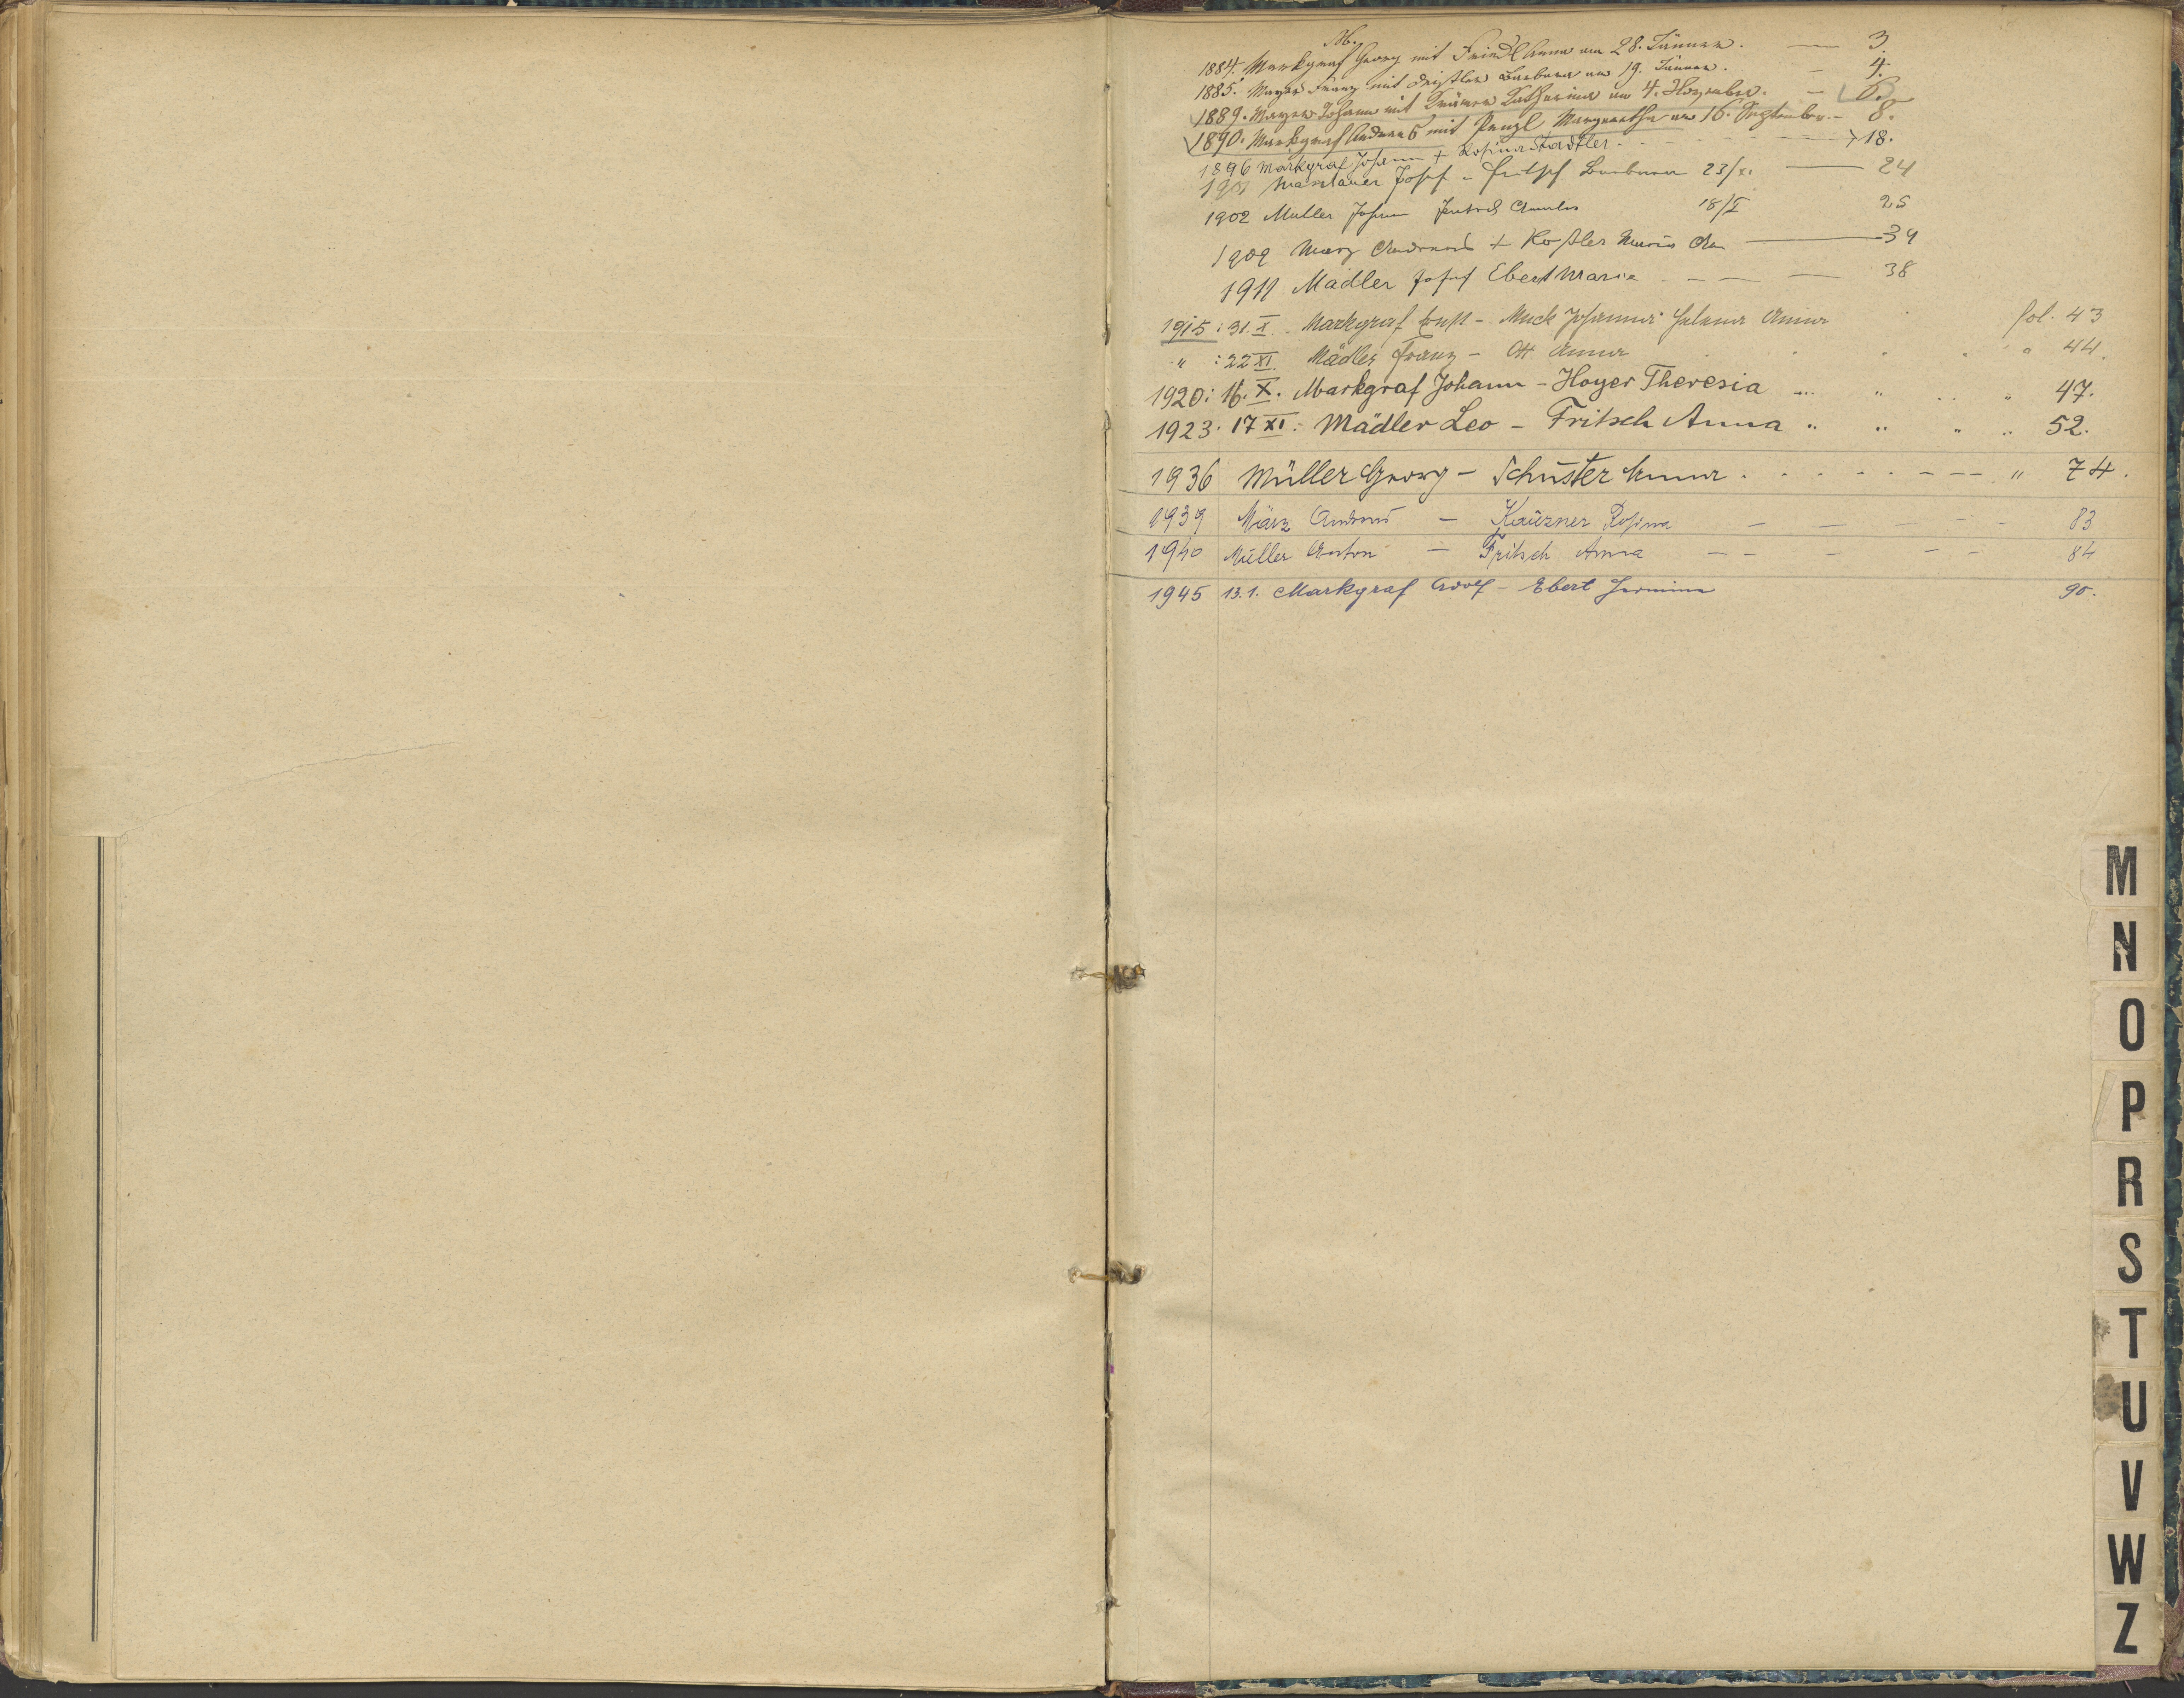 M.
1884. Markgraf Georg mit Friedl Anna am 28. Jänner. — 3.
1885. Mayer Franz mit Barbara am 19. Jänner. — 4.
1889. Mayer Johann mit Krämer Katharina am 4. November. — 8.
1890. Markgraf Andreas mit Penzl Margaretha am 16. September. — 8.
1896 Markgraf Johann + Rosina Stadtler - - - 18.
1901 Josef - Fritsch Barbara 23/XI — 24
1902 Müller Johann Fritsch Amalia 18/I 25
1909 März Andreas + Maria — 34
1911 Mädler Josef Ebert Maria - — — 38
1915: 31. X. Markgraf Ernst - Muck Johanna Helena Anna fol. 43
" : 22 XI. Mädler Franz - Ott Anna " " 44.
1920: 16. X. Markgraf Johann - Hoyer Theresia " " 47.
1923: 17 XI. Mädler Leo - Fritsch Anna " " " " 52.
1936 Müller Georg - Schuster Anna . . . . . - — " 74.
1939 März Andreas — Kauzner Rosina — — — — — 83
1940 Müller Anton — Fritsch Anna — — — — — 84
1945 13. 1. Markgraf Adolf - Ebert Hermine 90.
M
N
O
P
R
S
T
U
V
W
Z